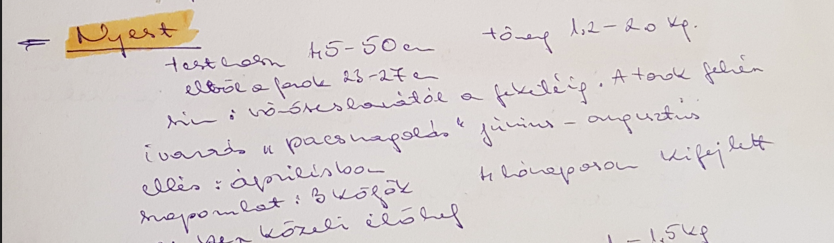 Nyest
testhossz 45-50 cm tömeg 1,2-2,0 kg.
ebből a farok 23-27 cm
szín: vörösesbarnától a feketéig. A torok fehér
ivarzás "pacsmagolás" június - augusztus
ellés: áprilisban
szaporulat: 3 kölyök 4 hónaposan kifejlett
közeli élőhely
1,5 kg